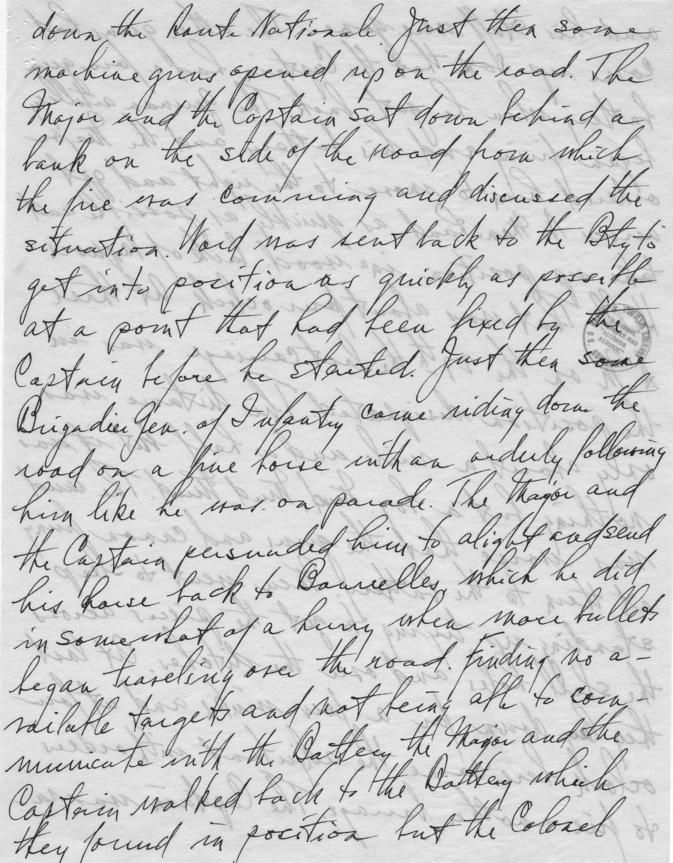 down the Route Nationale. Just then some
machine guns opened up on the road. The
Major and the Captain sat down behind a
bank on the side of the road from which
the fire was comming and discussed the
situation. Word was sent back to the Btry to
get into position as quickly as possible
at a point that had been fixed by the
Captain before he started. Just then some
Brigadier Gen. of Infantry came riding down the
road on a fine horse with an orderly following
him like he was on parade. The Major and
the Captain persuaded him to alight and send
his horse back to Baurelles, which he did
in somewhat of a hurry when more bullets
began traveling over the road. Finding no a-
vailable targets and not being able to com-
municate with the Battery the Major and the
Captain walked back to the Battery which
they found in position but the Colonel